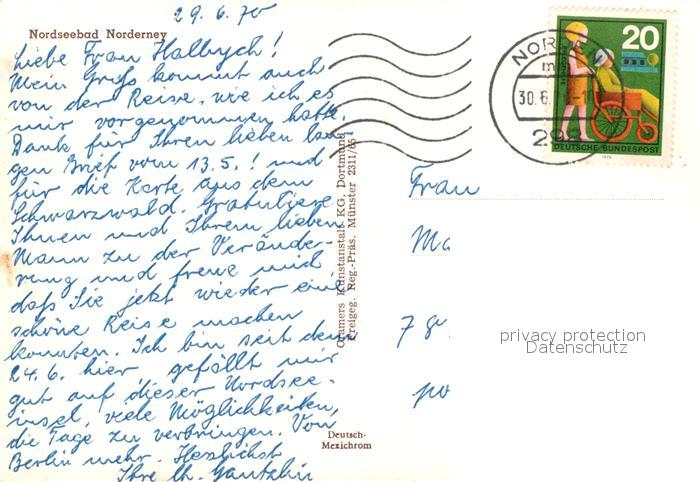 29.6.70
Nordseebad Norderney
Liebe Frau Halbych!
Mein Gruß kommt auch
von der Reise, wie ich es
mir vorgenommen hatte.
Dank für Ihren lieben lan-
gen Brief vom 13.5.! und
für die Karte aus dem
Schwarzwald. Gratuliere
Ihnen und Ihrem lieben
Mann zu der Verände-
rung und freue mich
daß Sie jetzt wieder eine
schöne Reise machen
konnten. Ich bin seit dem
24.6. hier gefällt mir
gut auf dieser Nordsee-
insel, viele Möglichkeiten,
die Tage zu verbringen. Von
Berlin mehr. Herzlichst
Ihre
Cramers Kunstanstalt KG, Dortmund
Freigeg. Reg.-Präs. Münster 2311/65
Deutsch-
Mexichrom
30.6.
20
DEUTSCHE BUNDESPOST
1970
Frau
Ma
privacy protection
Datenschutz